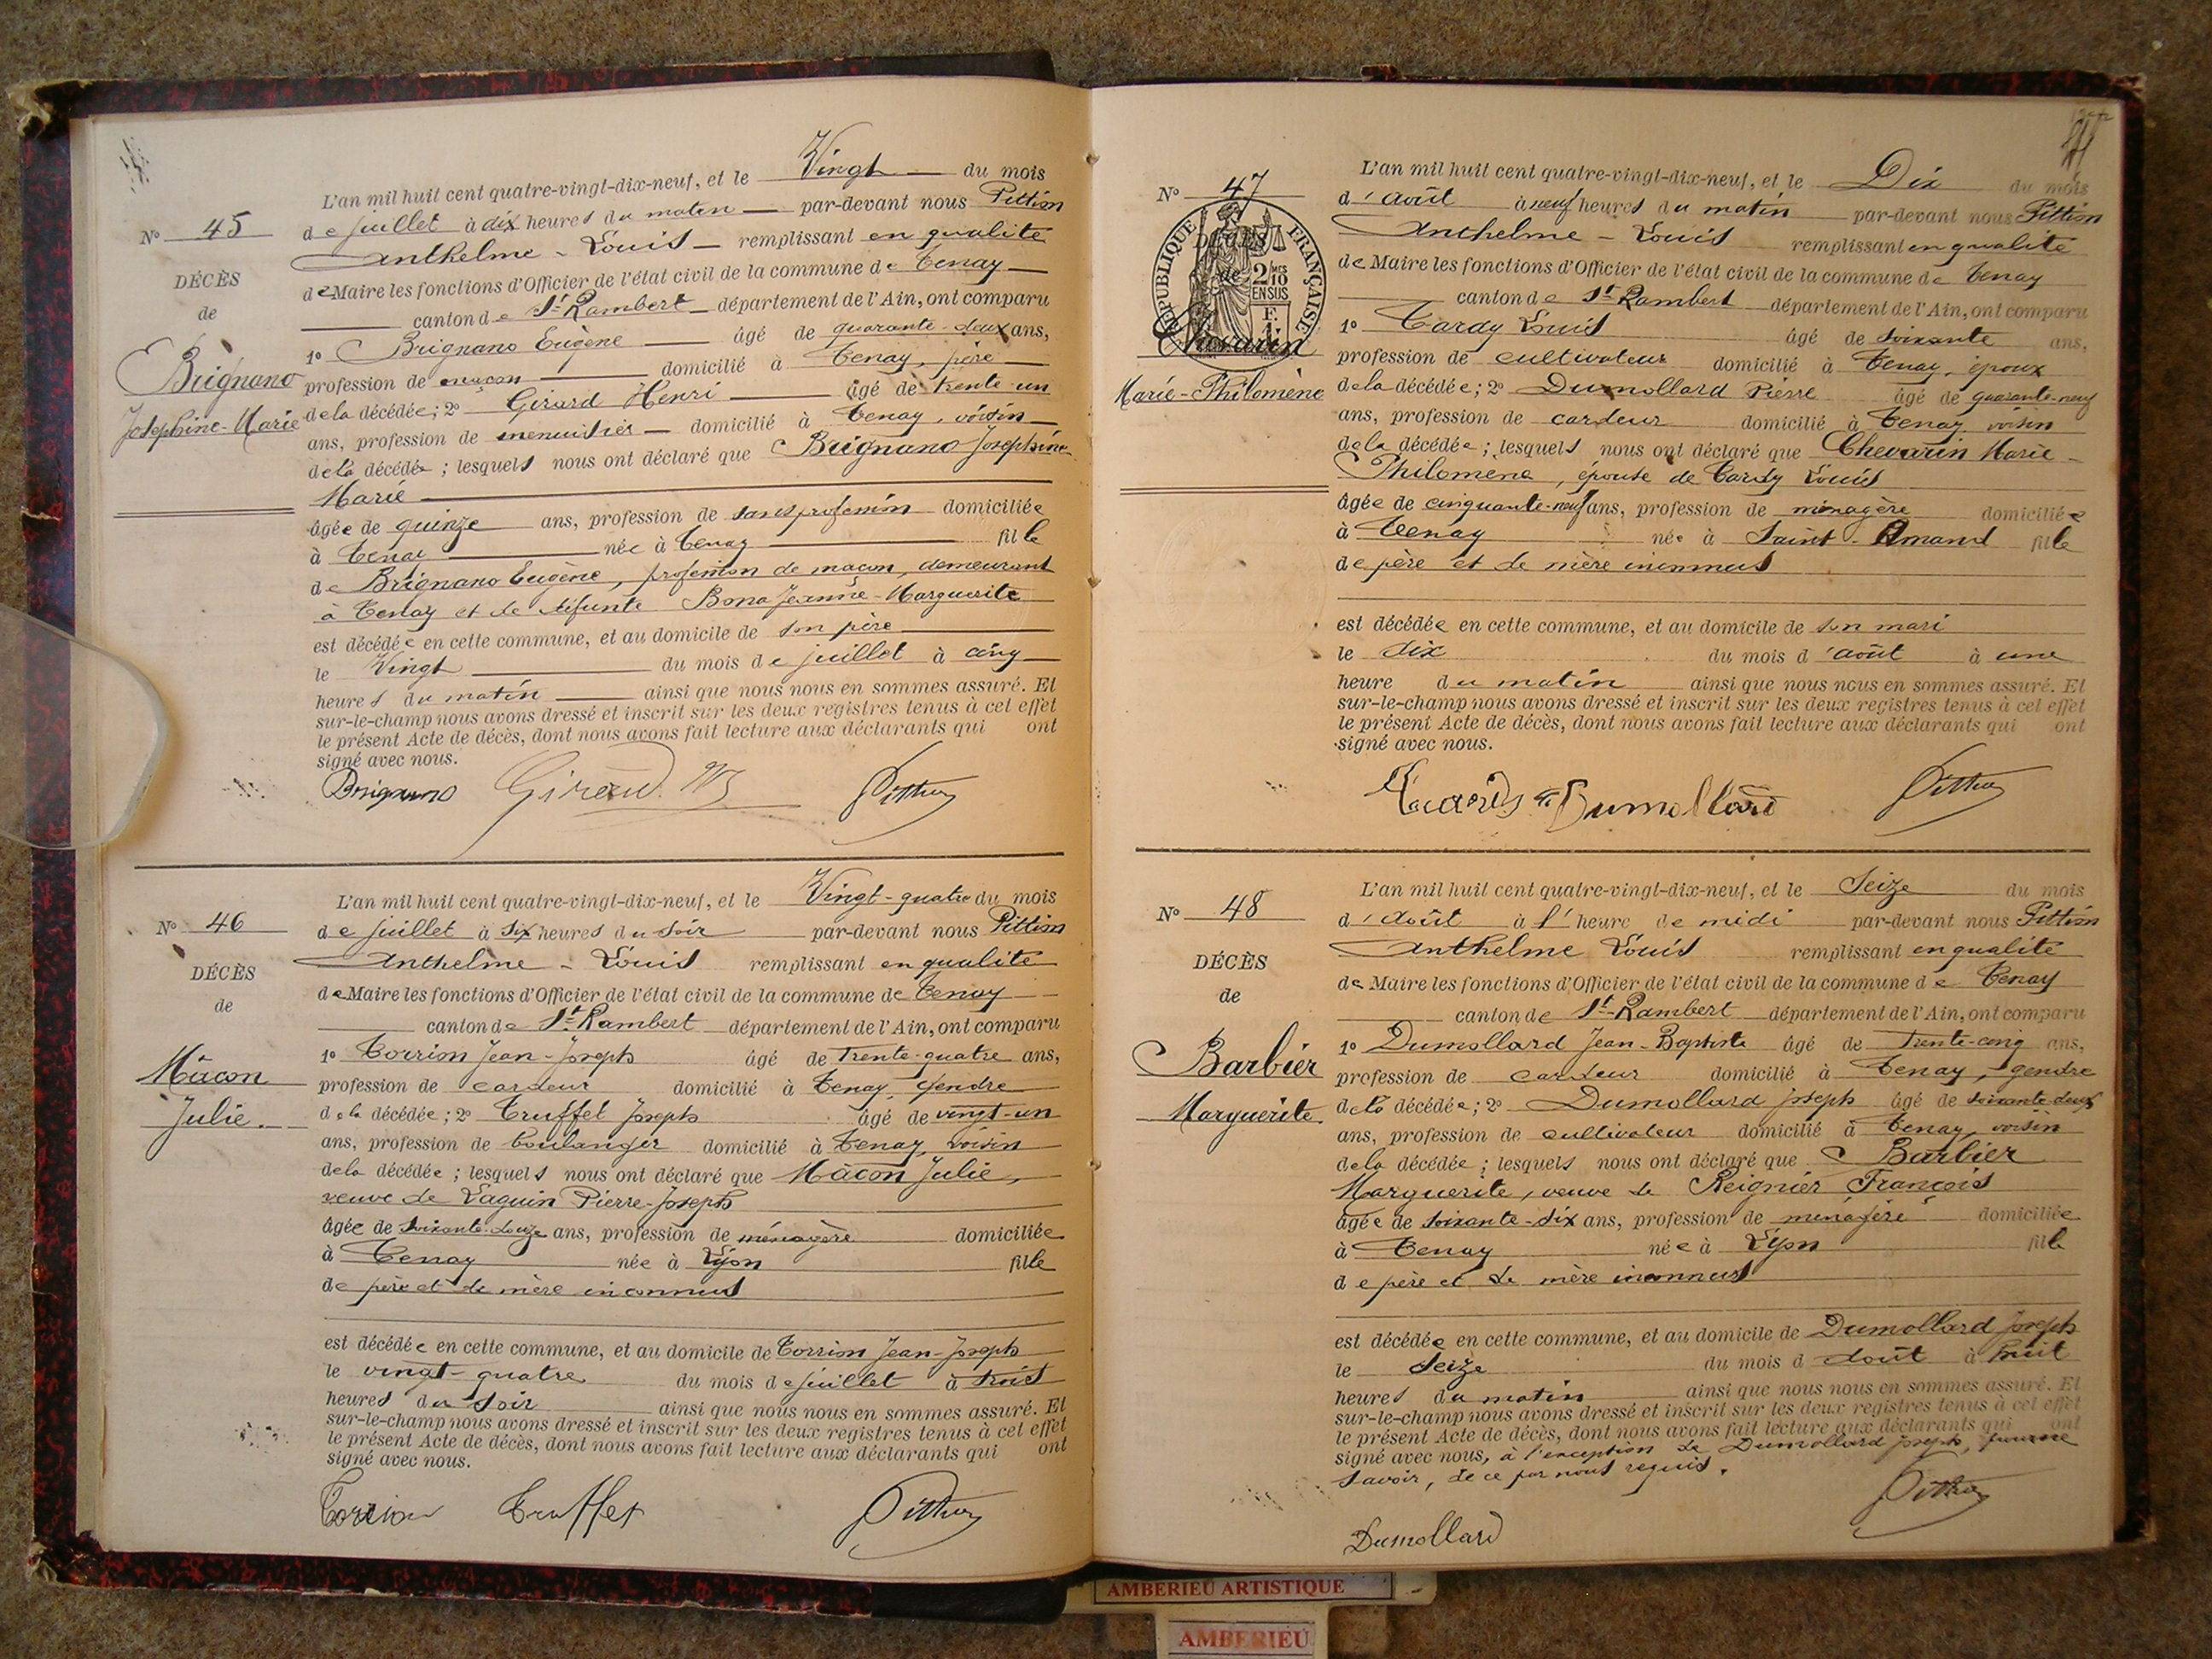 L'an mil huit cent quatre-vingt-dix-neuf, et le Vingt du mois
de juillet à dix heures du matin par-devant nous Pittion
Anthelme - Louis - remplissant en qualité
de Maire les fonctions d'Officier de l'état civil de la commune de Tenay
canton de St Rambert département de l'Ain, ont comparu
1o Brignano Eugène âgé de quarante-deux ans,
profession de maçon domicilié à Tenay, père
de la décédée; 2o Girard Henri âgé de trente-un
ans, profession de menuisier domicilié à Tenay, voisin
de la décédée; lesquels nous ont déclaré que Brignano Josephine
Marie
âgée de quinze ans, profession de sans profession domiciliée
à Tenay née à Tenay fille
de Brignano Eugène, profession de maçon, demeurant
à Tenay et de défunte Bona Jeanne-Marguerite
est décédée en cette commune, et au domicile de son père
le Vingt du mois de juillet à cinq
heures du matin ainsi que nous nous en sommes assuré. Et
sur-le-champ nous avons dressé et inscrit sur les deux registres tenus à cet effet
le présent Acte de décès, dont nous avons fait lecture aux déclarants qui ont
signé avec nous.
No 45
DÉCÈS
de
Brignano
Josephine-Marie
Brignano Pittion
L'an mil huit cent quatre-vingt-dix-neuf, et le Vingt-quatre du mois
de juillet à six heures du soir par-devant nous Pittion
Anthelme - Louis remplissant en qualité
de Maire les fonctions d'Officier de l'état civil de la commune de Tenay
canton de St Rambert département de l'Ain, ont comparu
1o Torrion Jean-Joseph âgé de trente-quatre ans,
profession de cardeur domicilié à Tenay, gendre
de la décédée; 2o Truffet Joseph âgé de vingt-un
ans, profession de boulanger domicilié à Tenay, voisin
de la décédée; lesquels nous ont déclaré que Mâcon Julie,
veuve de Laguin Pierre-Joseph
âgée de soixante-douze ans, profession de ménagère domiciliée
à Tenay née à Lyon fille
de père et de mère inconnus
est décédée en cette commune, et au domicile de Torrion Jean-Joseph
le vingt-quatre du mois de juillet à trois
heures du soir ainsi que nous nous en sommes assuré. Et
sur-le-champ nous avons dressé et inscrit sur les deux registres tenus à cet effet
le présent Acte de décès, dont nous avons fait lecture aux déclarants qui ont
signé avec nous.
No 46
DÉCÈS
de
Mâcon
Julie.
Torrion Truffet Pittion
L'an mil huit cent quatre-vingt-dix-neuf, et le Dix du mois
d'août à neuf heures du matin par-devant nous Pittion
Anthelme - Louis remplissant en qualité
de Maire les fonctions d'Officier de l'état civil de la commune de Tenay
canton de St Rambert département de l'Ain, ont comparu
1o Tardy Louis âgé de soixante ans,
profession de cultivateur domicilié à Tenay, époux
de la décédée; 2o Dumollard Pierre âgé de quarante-neuf
ans, profession de cardeur domicilié à Tenay, voisin
de la décédée; lesquels nous ont déclaré que Chevarin Marie-
Philomène, épouse de Tardy Louis
âgée de cinquante-neuf ans, profession de ménagère domiciliée
à Tenay née à Saint-Amand fille
de père et de mère inconnus
est décédée en cette commune, et au domicile de son mari
le dix du mois d'août à une
heure du matin ainsi que nous nous en sommes assuré. Et
sur-le-champ nous avons dressé et inscrit sur les deux registres tenus à cet effet
le présent Acte de décès, dont nous avons fait lecture aux déclarants qui ont
signé avec nous.
No 47
RÉPUBLIQUE FRANÇAISE
DÉCÈS
de
2/10 MES
EN SUS
Chevarin
Marie-Philomène
Dumollard Pittion
L'an mil huit cent quatre-vingt-dix-neuf, et le Seize du mois
d'août à l'heure de midi par-devant nous Pittion
Anthelme Louis remplissant en qualité
de Maire les fonctions d'Officier de l'état civil de la commune de Tenay
canton de St-Rambert département de l'Ain, ont comparu
1o Dumollard Jean-Baptiste âgé de trente-cinq ans,
profession de cardeur domicilié à Tenay, gendre
de la décédée; 2o Dumollard Joseph âgé de soixante-deux
ans, profession de cultivateur domicilié à Tenay, voisin
de la décédée; lesquels nous ont déclaré que Barbier
Marguerite, veuve de Reignier François
âgée de soixante-dix ans, profession de ménagère domiciliée
à Tenay née à Lyon fille
de père et de mère inconnus
est décédée en cette commune, et au domicile de Dumollard Joseph
le Seize du mois d'août à huit
heures du matin ainsi que nous nous en sommes assuré. Et
sur-le-champ nous avons dressé et inscrit sur les deux registres tenus à cet effet
le présent Acte de décès, dont nous avons fait lecture aux déclarants qui ont
signé avec nous, à l'exception de Dumollard Joseph, pour ne
savoir, de ce par nous requis.
No 48
DÉCÈS
de
Barbier
Marguerite.
Dumollard Pittion
AMBERIEU ARTISTIQUE
AMBERIEU